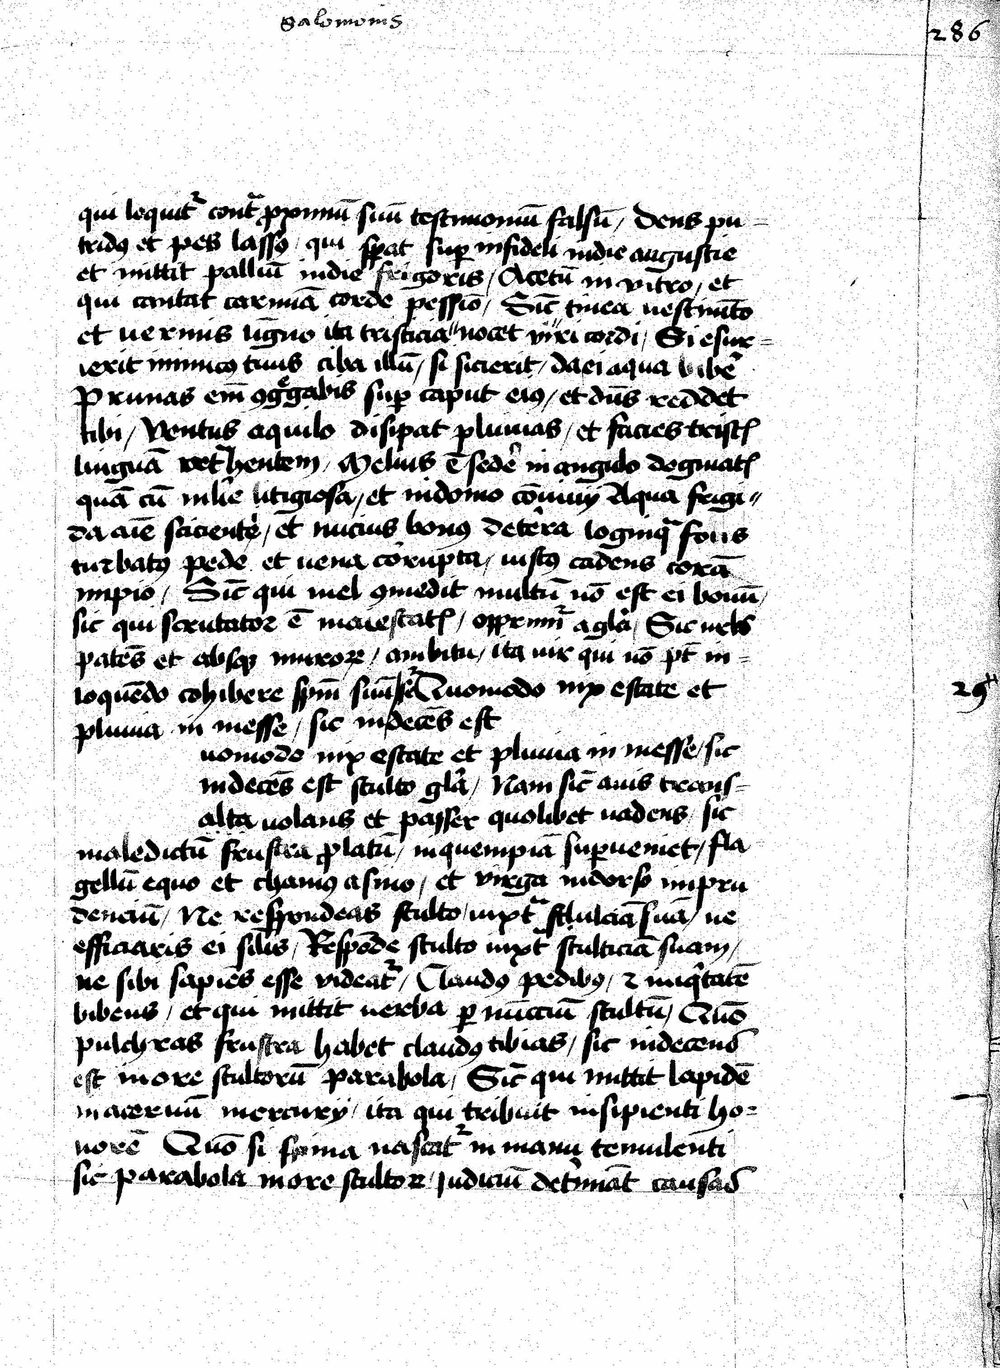 Salomonis
286
qui loquitr contra proximu suu testimoniu falsu / Dens pu=
trid9 et pes lass9 / qui sperat super infideli in die augustie
et mittit palliu in die frigoris / Acetu in vitro / et
qui cantat carmina corde pessimo / Sic tinea uestimeto
et uermis ligno ita tristicia nocet viri cordi / Si esur=
ierit inimic9 tuus ciba illu / si sicierit / da ei aqua bibere
Prunas em 9g'gabis sup caput eius / et dns reddet
tibi / Ventus aquilo disipat pluuias / et facies tristis
lingua detrahentem / Melius e sede' in angulo dogmatis
qua cu mlie' litigiosa / et in domo comuni Aqua frigi=
da aie sciciente / et nucius bonus de terra loginqa fons
turbat9 pede et uena corupta / iust9 cadens cora
impio / Sic qui mel 9medit multu no est ei bonu /
sic qui scrutator e maiestatis / opprimitr a gla / Sic urbs
pates et absq muror / ambitu / ita uir qui no pt in=
loquedo cohibere spm suu Quomodo nix estate et
29
pluuia in messe / sic indeces est
uomodo nix estate et pluuia in messe / sic
indeces est stulto gla / Nam sic auis trans=
alta uolans et passer quolibet uadens / sic
maledictu frustra platu / in quempia superueniet / fla
gellu equo et chamus asino / et virga in dorso impru
denciu / Ne respondeas stulto iuxta stulticia sua / ne
efficiaris ei silis / Respode stulto iuxta stulticia suam /
ne sibi sapies esse videatr / Claud9 pedib9 / z iniqitate
bibens / et qui mittit uerba p nunciu stultu / Quo
pulchras frustra habet claud9 tibias / sic indecens
est in ore stultoru parabola / Sic qui mittit lapide
in aceruu mercurij / ita qui tribuit insipienti ho=
nore Quo si spina nascatr in manu temulenti
sic parabola in ore stultor / Judiciu determinat causas